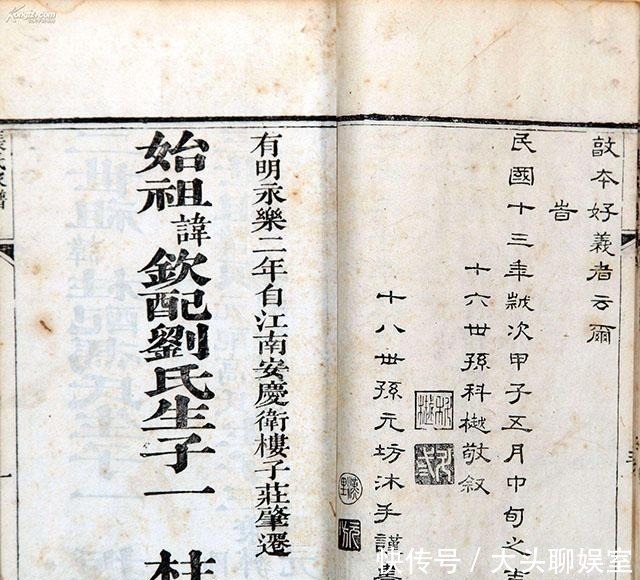 敦本好義者云爾
旹
民國十三年歲次甲子五月中旬之吉
十六世孫科樾敬叙
十八世孫元坊沐手謹書
有明永樂二年自江南安慶衛樓子莊肇遷
始祖諱欽配劉氏生子一
氏家譜
Kongfz.com
快传号／大头聊娱室